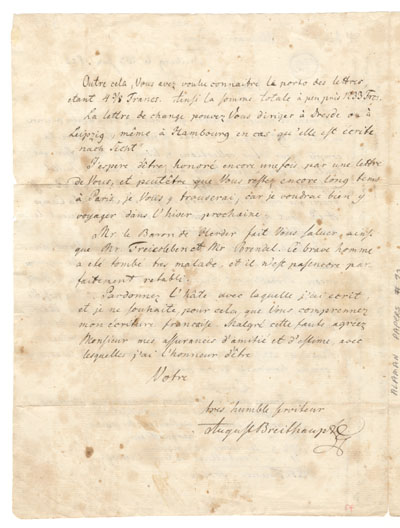 Outre cela, Vous avez voulu connaitre le porto des lettres,
etant 4 3/8 Francs. Ainsi la somme totale à peu près 1233 Frcs.
La lettre de change pouvez Vous diriger à Dresde ou à
Leipzig, même à Hambourg en cas qu'elle est ecrite
nach Sicht.
J'espere d'être honoré encore une fois par une lettre
de Vous, et peutêtre que Vous restez encore long tems
à Paris, je Vous y trouverai, car je voudrai bien y
voyager dans l'hiver prochaine.
Mr le Baron de Herder fait Vous saluer, ainsi
que Mr Freiesleben et Mr Brendel. Ce brave homme
a eté tombé tres malade, et il n'est pas encore par-
faitement retabli.
Pardonnez l'hâte avec laquelle j'ai ecrit,
et je ne souhaite, pour cela, que Vous comprennez
mon ecriture française. Malgré cette faute agreez
Monsieur mes assurances d'amitié et d'estime, avec
lesquelles j'ai l'honneur d'être
Votre
tres humble serviteur
August Breithaupt